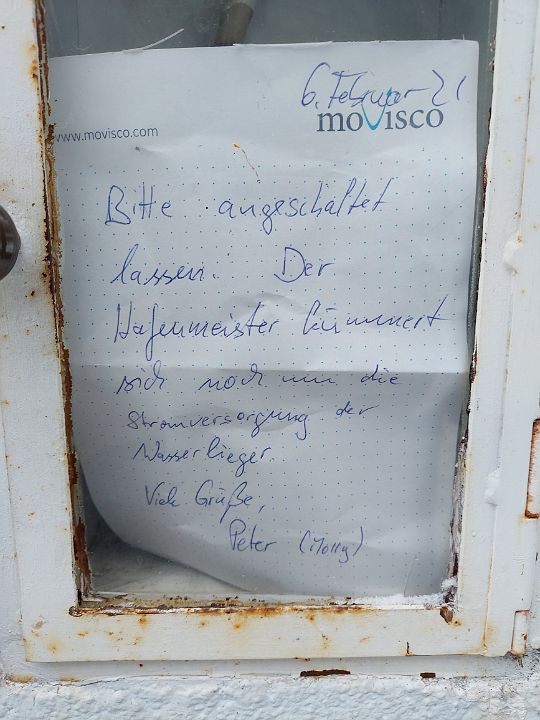 6. Februar 21
movisco
www.movisco.com
Bitte angeschaltet
lassen. Der
Hafenmeister kümmert
sich noch um die
Stromversorgung der
Wasserlieger.
Viele Grüße,
Peter (Molly)